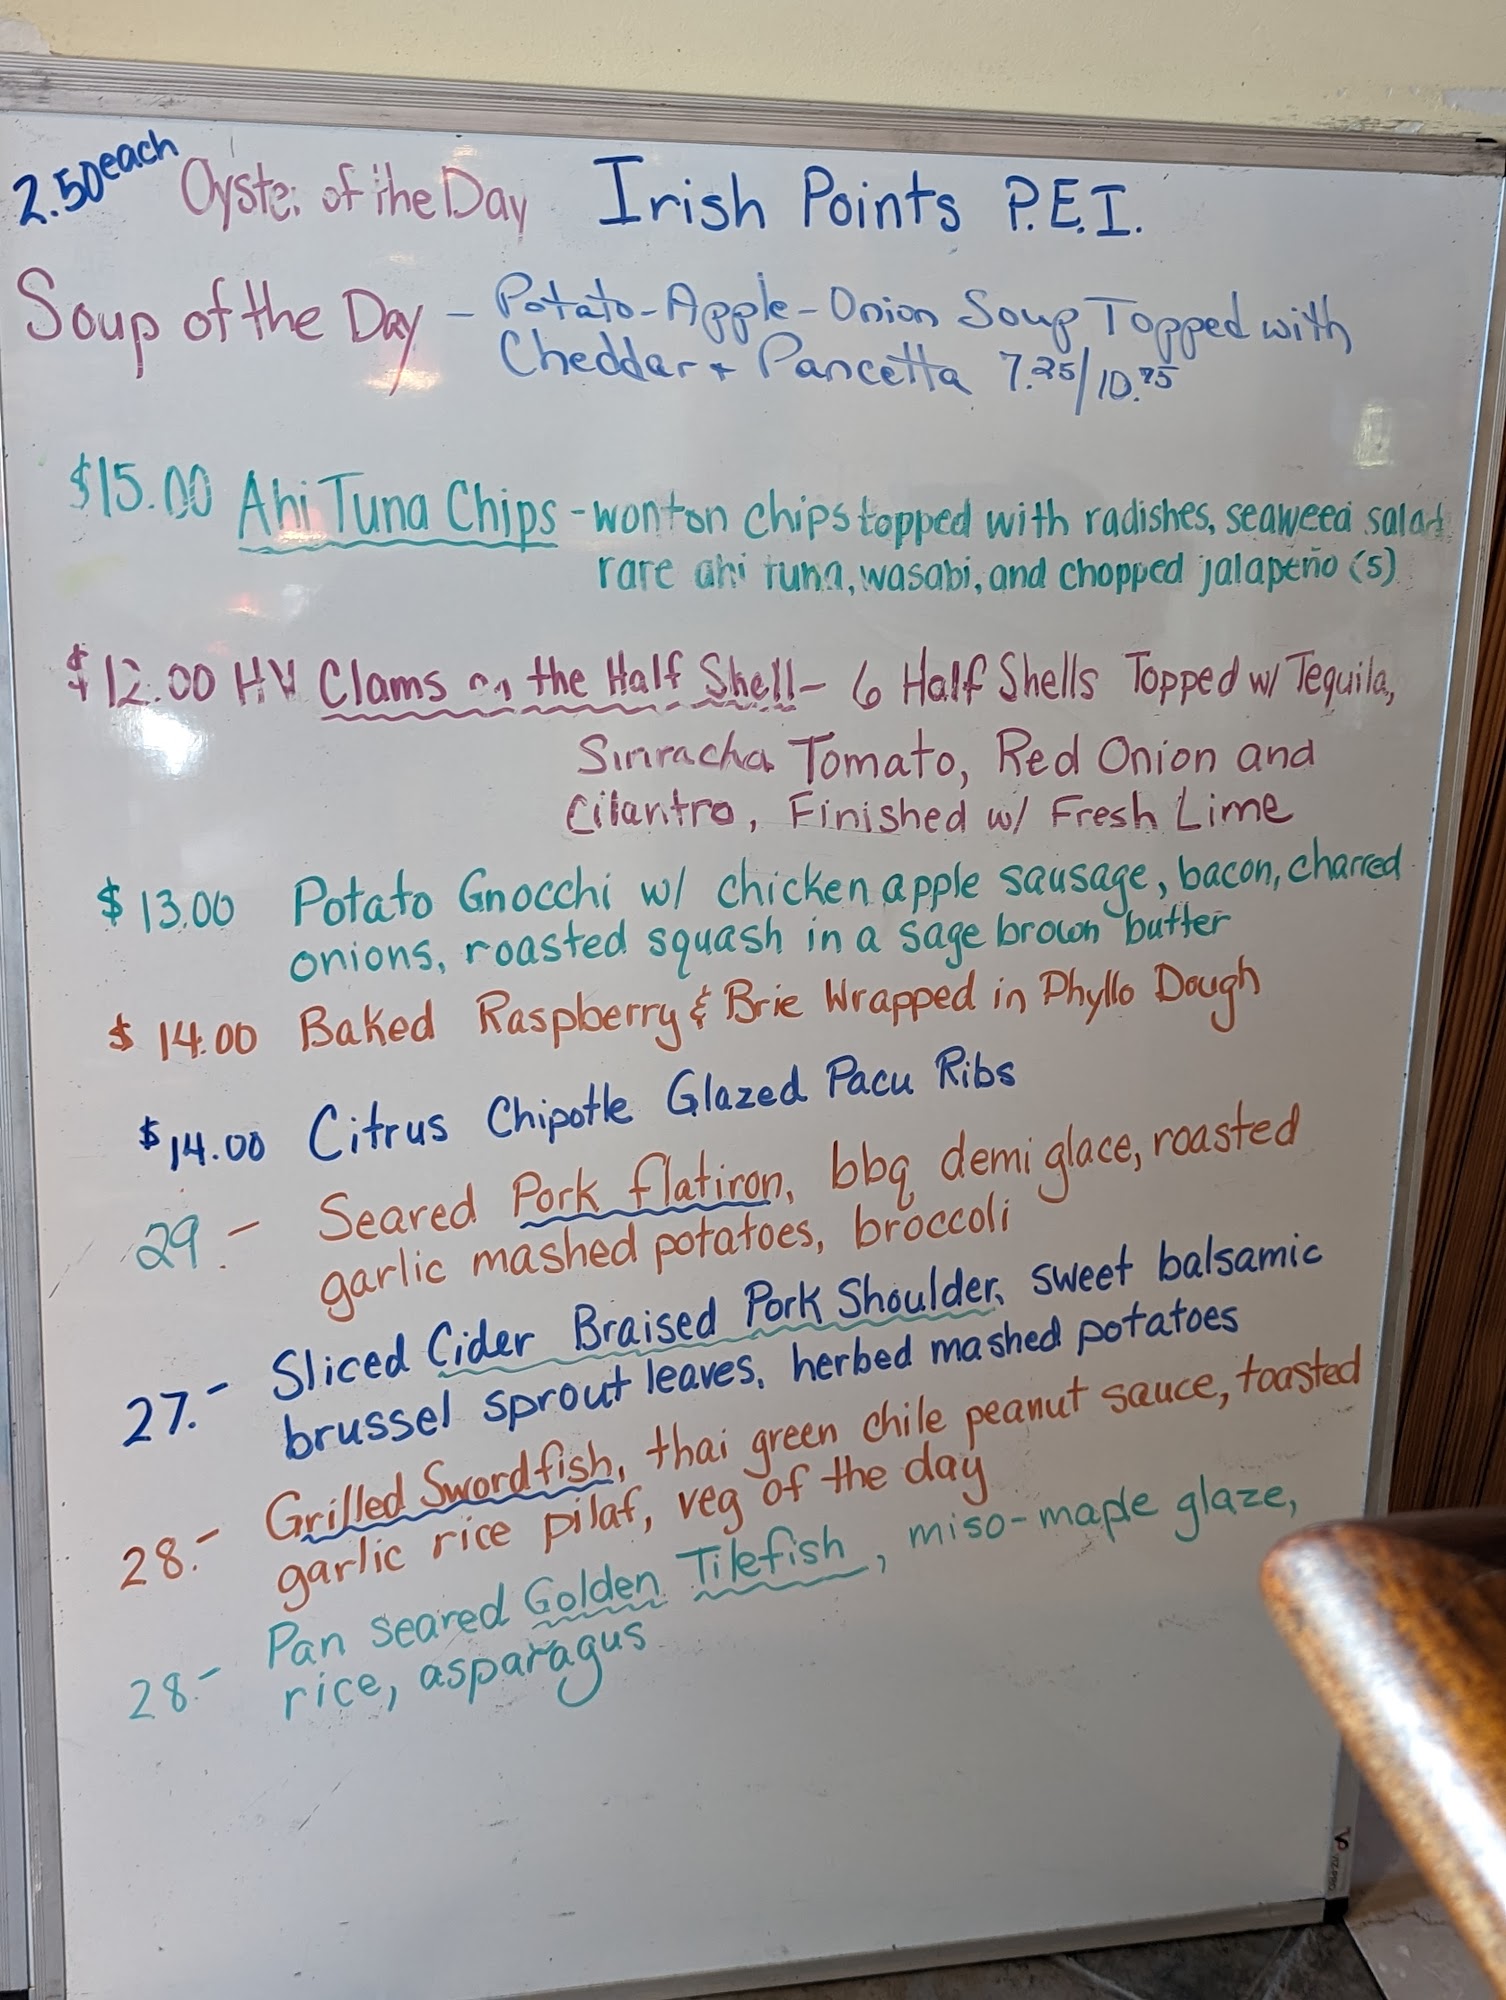 2.50 each Oyster of the Day Irish Points P.E.I.
Soup of the Day - Potato-Apple-Onion Soup Topped with
Cheddar + Pancetta 7.25/10.75
$15.00 Ahi Tuna Chips - wonton chips topped with radishes, seaweed salad
rare ahi tuna, wasabi, and chopped jalapeño (5)
$12.00 HV Clams on the Half Shell - 6 Half Shells Topped w/ Tequila,
Sriracha Tomato, Red Onion and
Cilantro, Finished w/ Fresh Lime
$13.00 Potato Gnocchi w/ chicken apple sausage, bacon, charred
onions, roasted squash in a sage brown butter
$14.00 Baked Raspberry & Brie Wrapped in Phyllo Dough
$14.00 Citrus Chipotle Glazed Pacu Ribs
29.- Seared Pork flatiron, bbq demi glace, roasted
garlic mashed potatoes, broccoli
27.- Sliced Cider Braised Pork Shoulder, sweet balsamic
brussel sprout leaves, herbed mashed potatoes
28.- Grilled Swordfish, thai green chile peanut sauce, toasted
garlic rice pilaf, veg of the day
28.- Pan seared Golden Tilefish, miso-maple glaze,
rice, asparagus